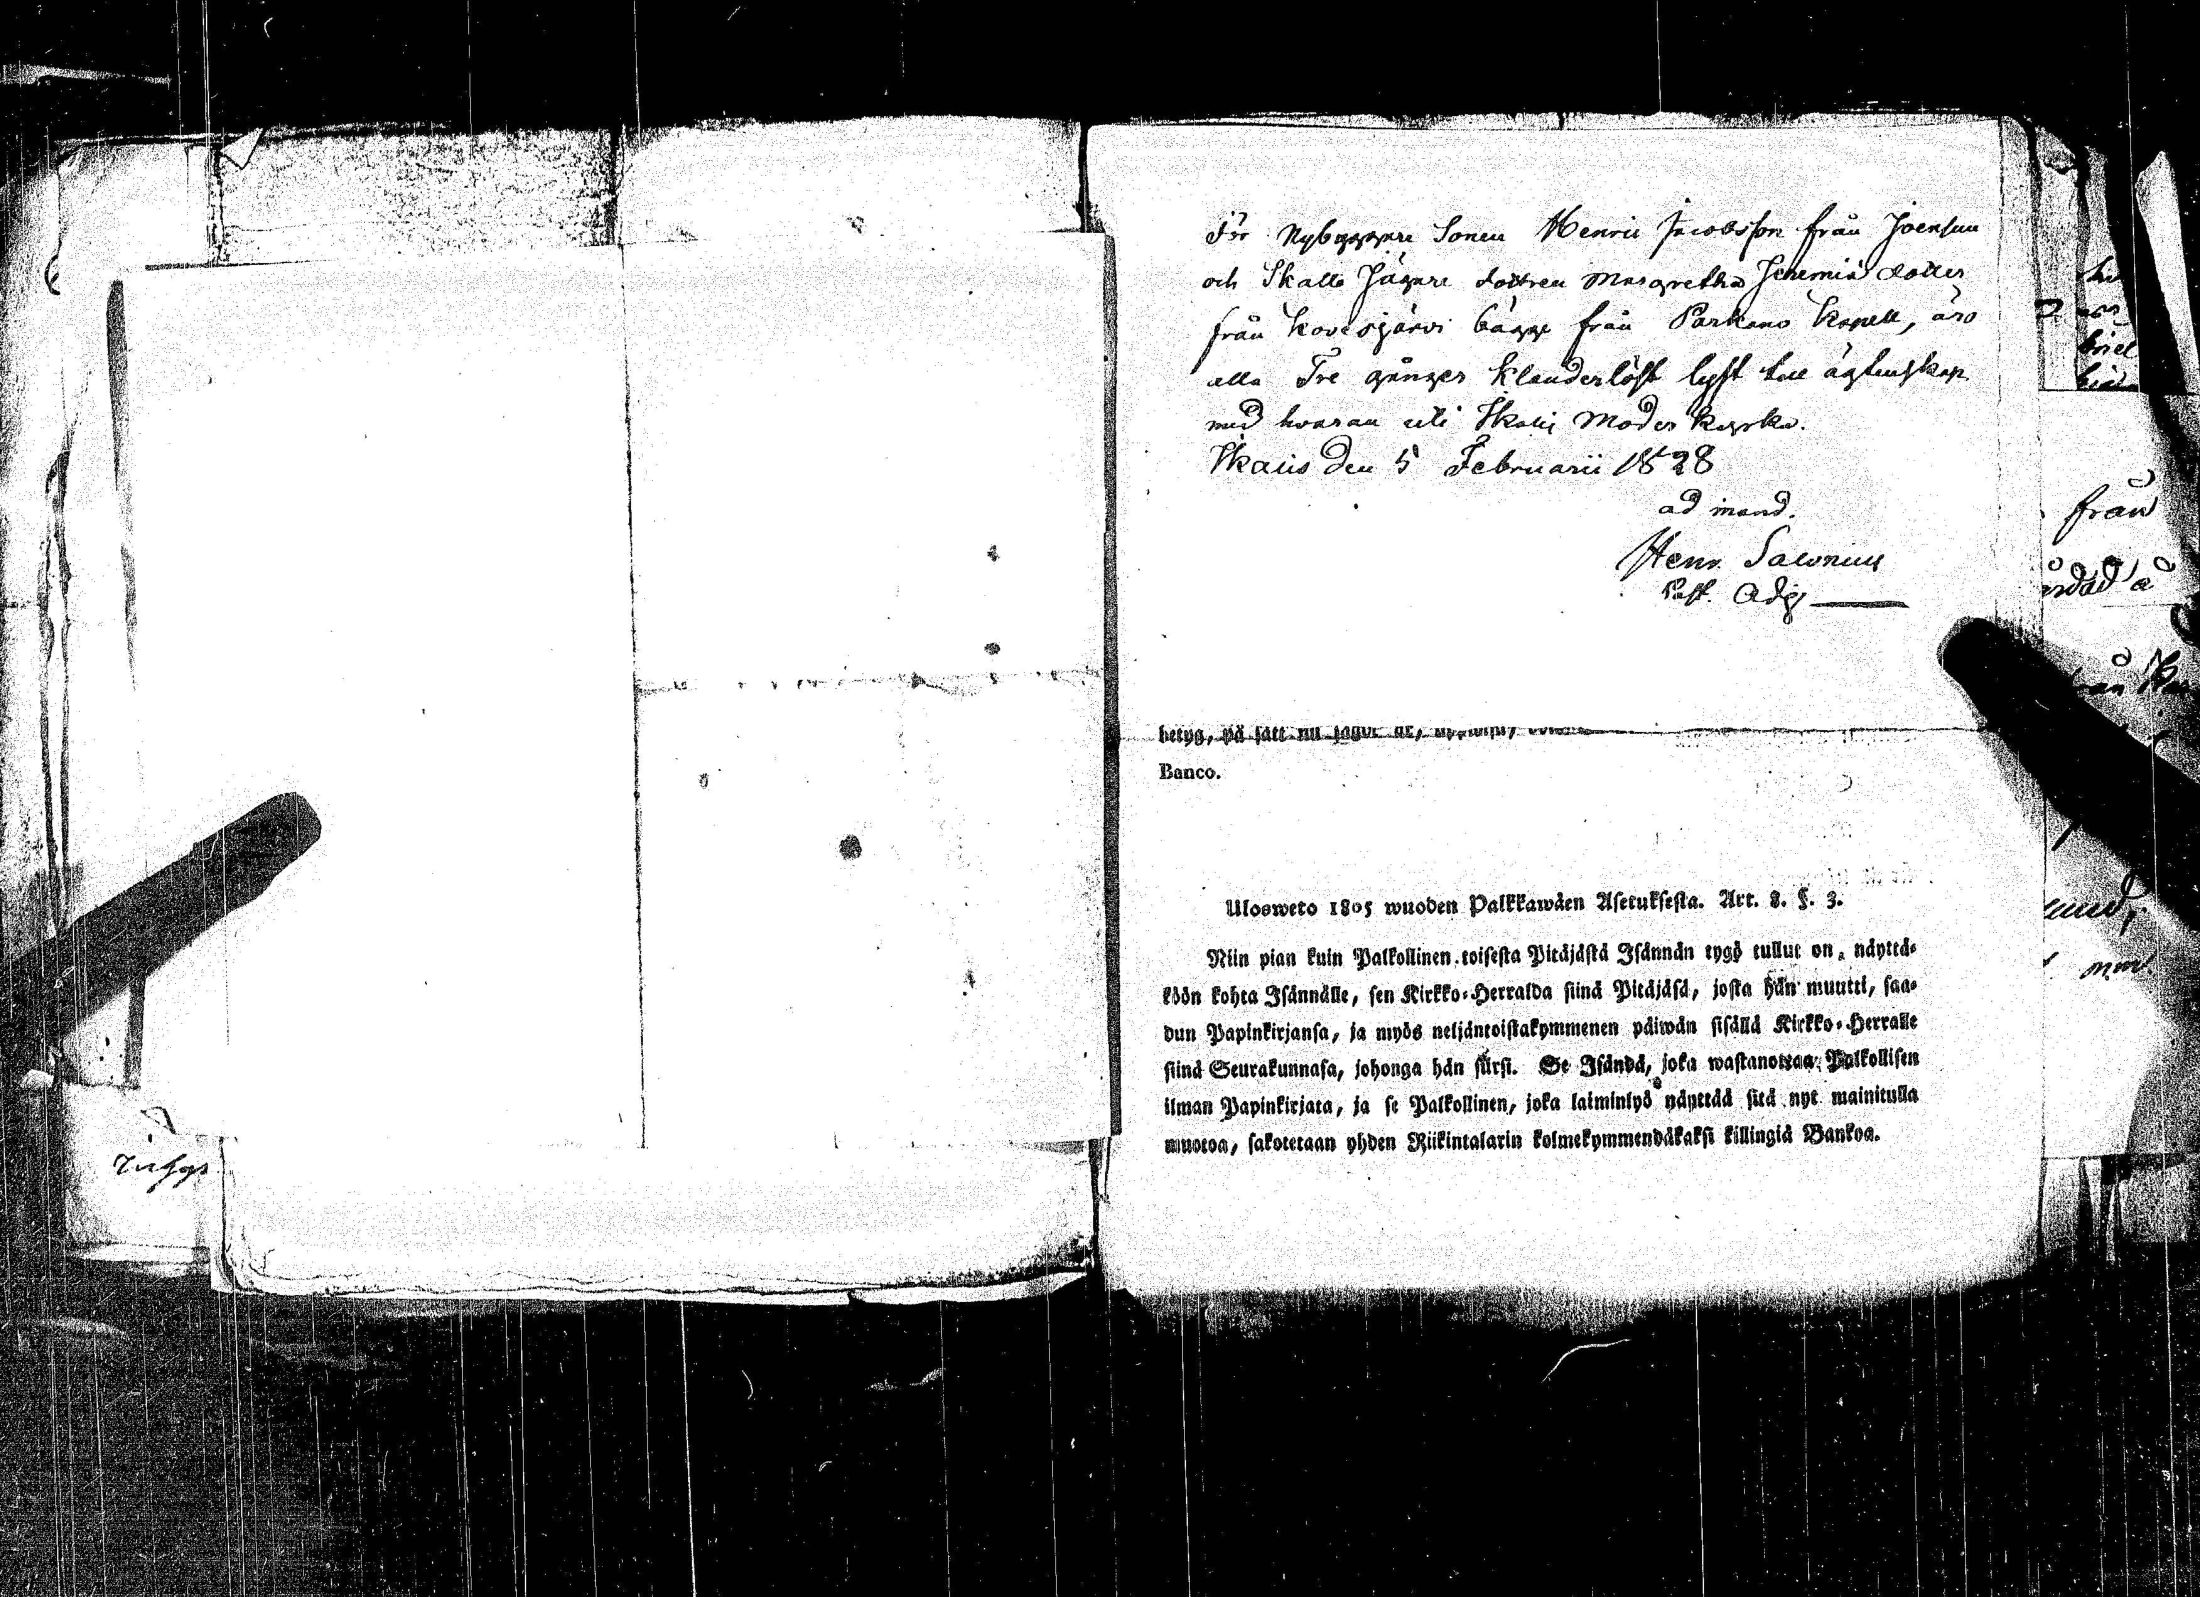 För Nybyggare Sonen Henric Jacobsson från Joensuu
och Skatte Jägare dottren Margretha Jeremiæ dotter
från Kovesjärvi bägge från Parkano Kapell, äro
alla Tre gånger klanderlöst lyst till ägtenskap
med hvaran uti Ikalis Moder kyrka.
Ikalis den 5 Februarii 1828
ad mand.
Henr. Salonius
Past. Adj
betyg, på sätt nu sagdt är,
Banco.
Ulosweto 1805 wuoden Palkkawäen Asetuksesta. Art. 8. §. 3.
Niin pian kuin Palkollinen toisesta Pitäjästä Isännän tygö tullut on, näyttä-
köön kohta Isännälle, sen Kirkko-Herralda siinä Pitäjäsä, josta hän muutti, saa-
dun Papinkirjansa, ja myös neljäntoistakymmenen päiwän sisällä Kirkko-Herralle
siinä Seurakunnasa, johonga hän siirsi. Se Isändä, joka wastanottaa Palkollisen
ilman Papinkirjata, ja se Palkollinen, joka laiminlyö näyttää sitä nyt mainitulla
muotoa, sakotetaan yhden Riikintalarin kolmekymmendäkaksi killingiä Bankoa.
från